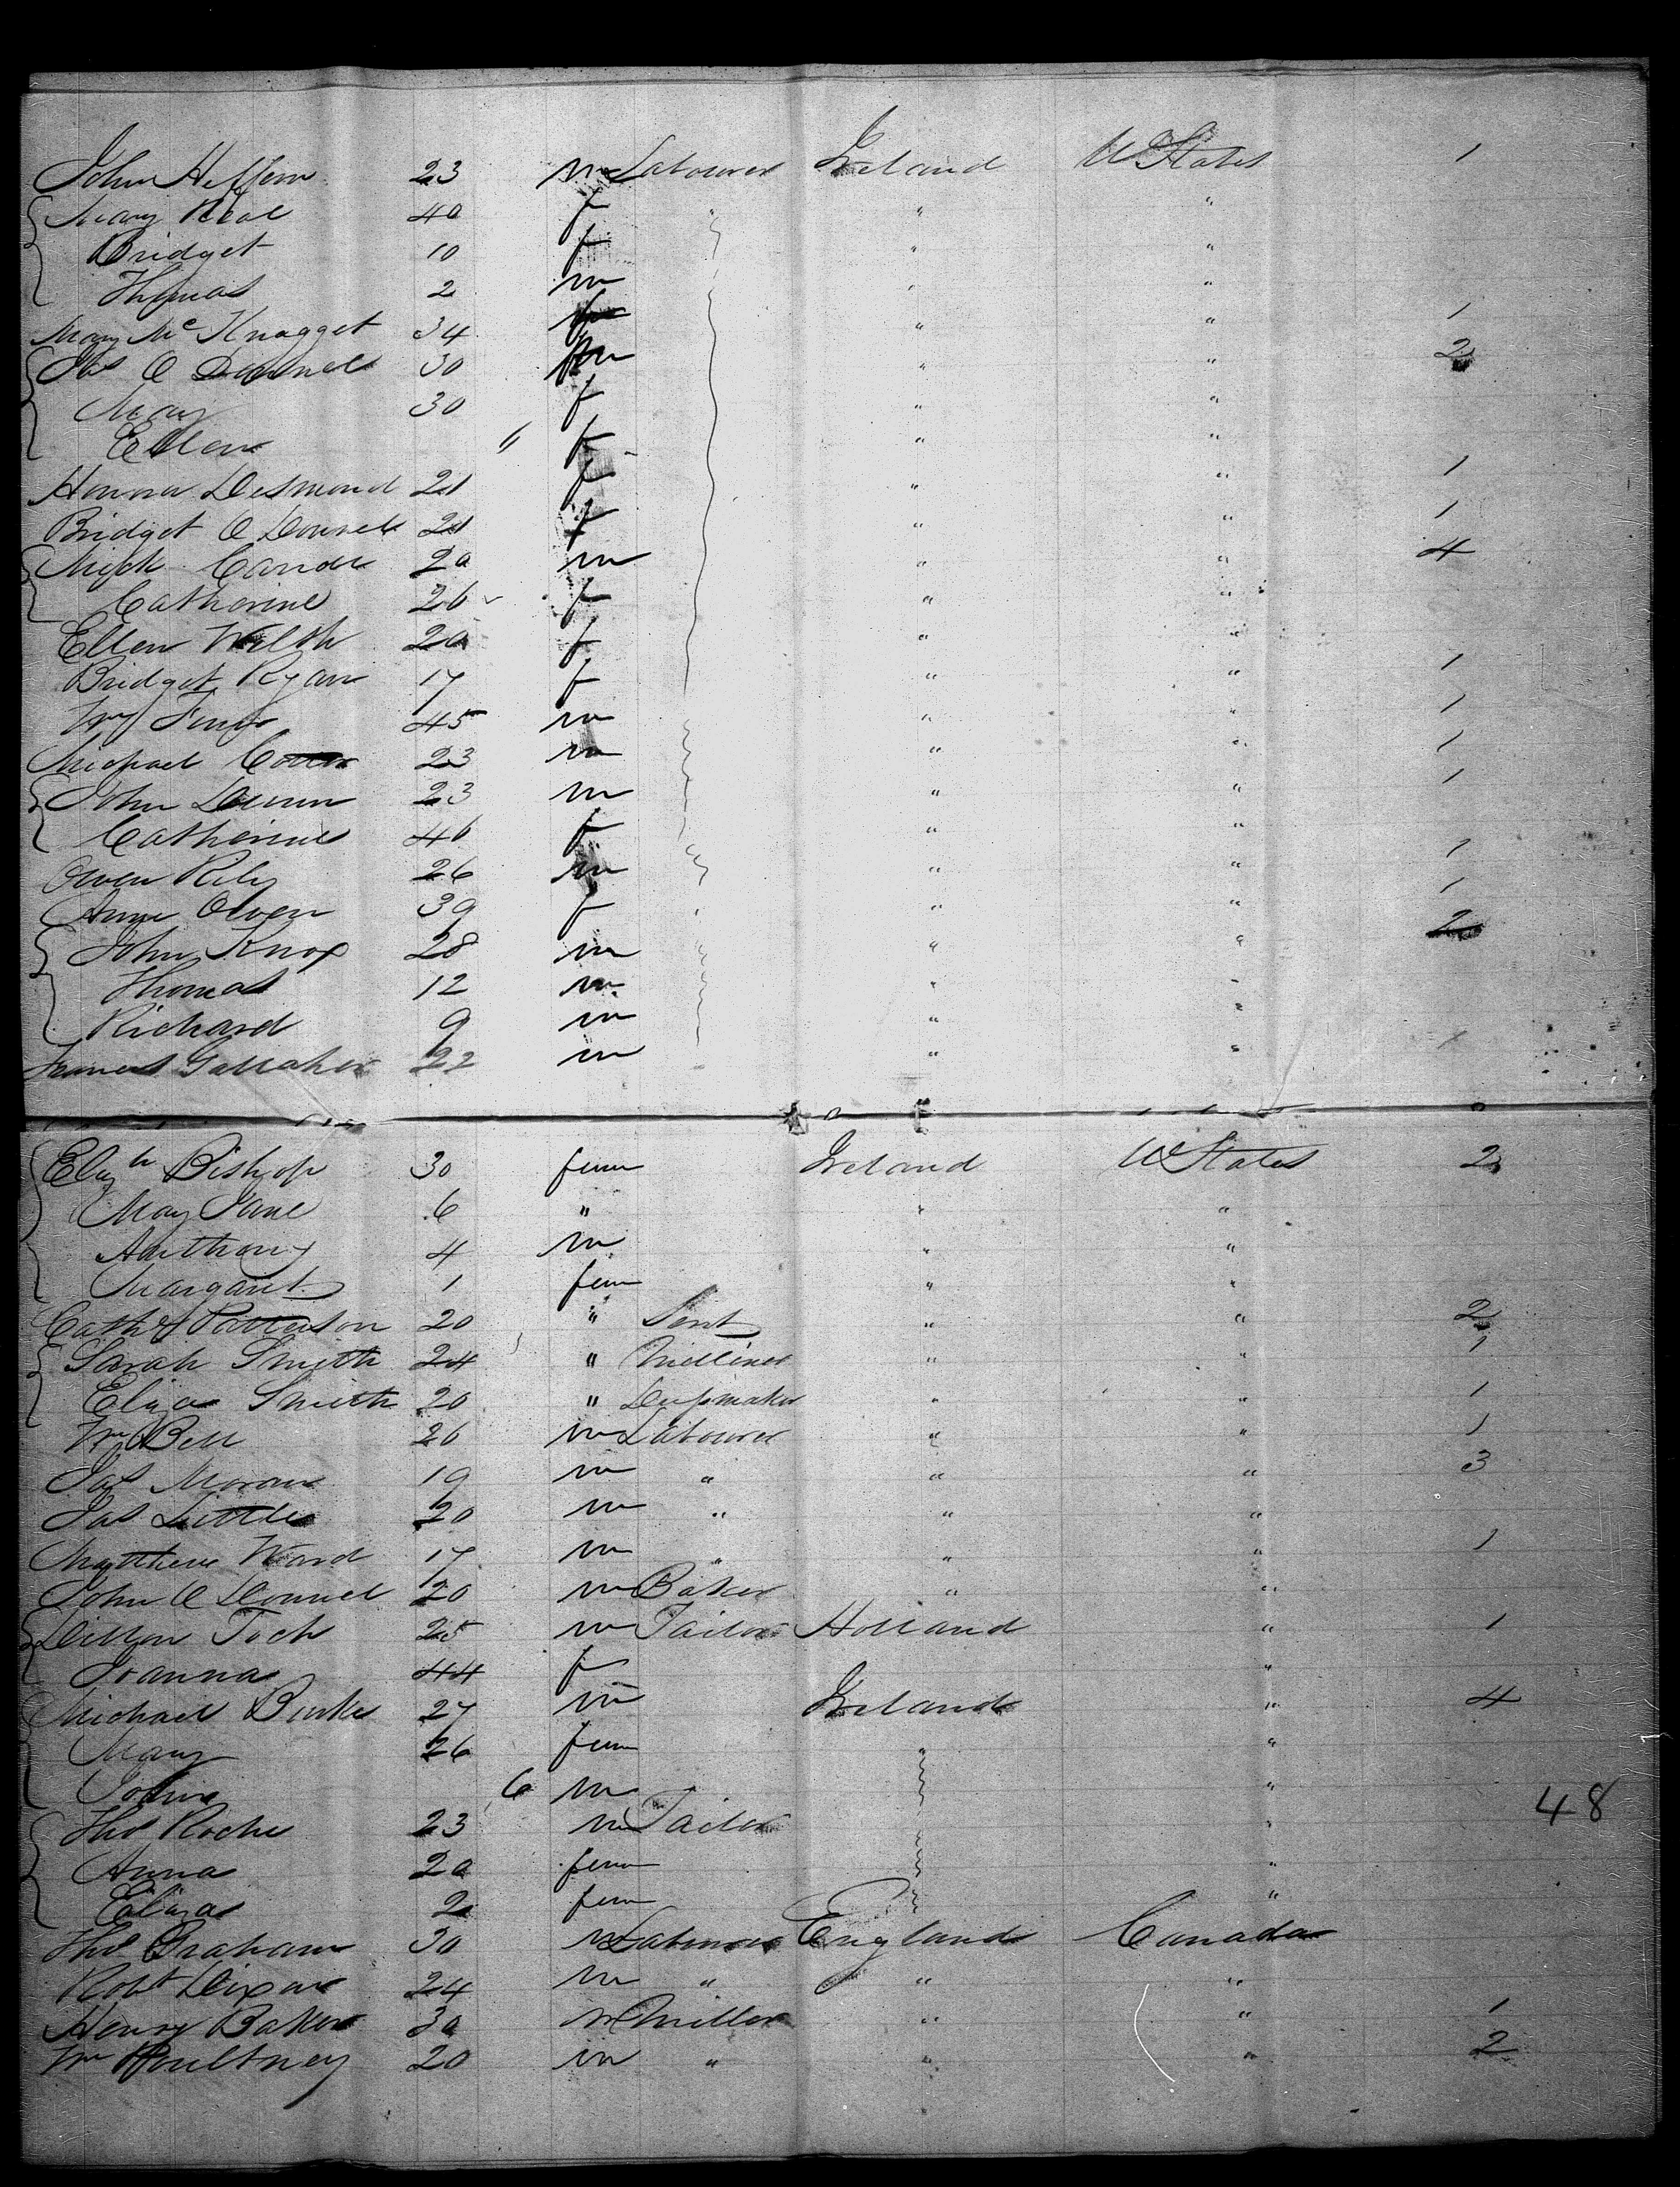 John Heffern 23 m Labourer Ireland W States 1
Mary Neal 40 f " " "
Bridget 10 f " "
Thomas 2 m " "
Mary Mc Knagget 34 " " 1
Jas O Donnel 30 m " " 2
Mary 30 f " "
Ellen " f " "
Honora Desmond 21 f " " 1
Bridget O Donnel 21 f " " 1
Mich 20 m " " 4
Catherine 26 f " "
Ellen Welsh 20 f " "
Bridget Ryan 17 f " " 1
Wm 45 m " " 1
Michael 23 m " " 1
John 23 m " " 1
Catherine 46 f " "
Owen Rily 26 m " " 1
Anne Owen 39 f " " 1
John Knox 28 m " " " 2
Thomas 12 m " "
Richard 9 m " "
Gallaher 22 m " "
Elizth Bishop 30 fem Ireland W States 2
May Jane 6 " " "
Anthony 4 m " "
Margaret 1 fem " "
Cath Patterson 20 " Servt " " 2
Sarah Smith 24 " Milliner " " 1
Eliza Smith 20 " " " 1
Wm Bell 26 m Labourer " " 1
Jas Moran 19 m " " " 3
Jas Little 20 m " " "
Matthew Ward 17 m " " " 1
John O Donnel 20 m Baker " "
Toch 25 m Tailor Holland " 1
Joanna 44 f "
Michael Burke 27 m Ireland " 4
Mary 26 fem " "
6 m "
Thos Roche 23 m Tailor "
48
Anna 20 fem "
Eliza 2 fem "
Thos Graham 30 m Labourer England Canada
Robt Dixon 24 m " " "
Henry Baker 30 m Miller " " 1
Wm Poultney 20 m " " " 2